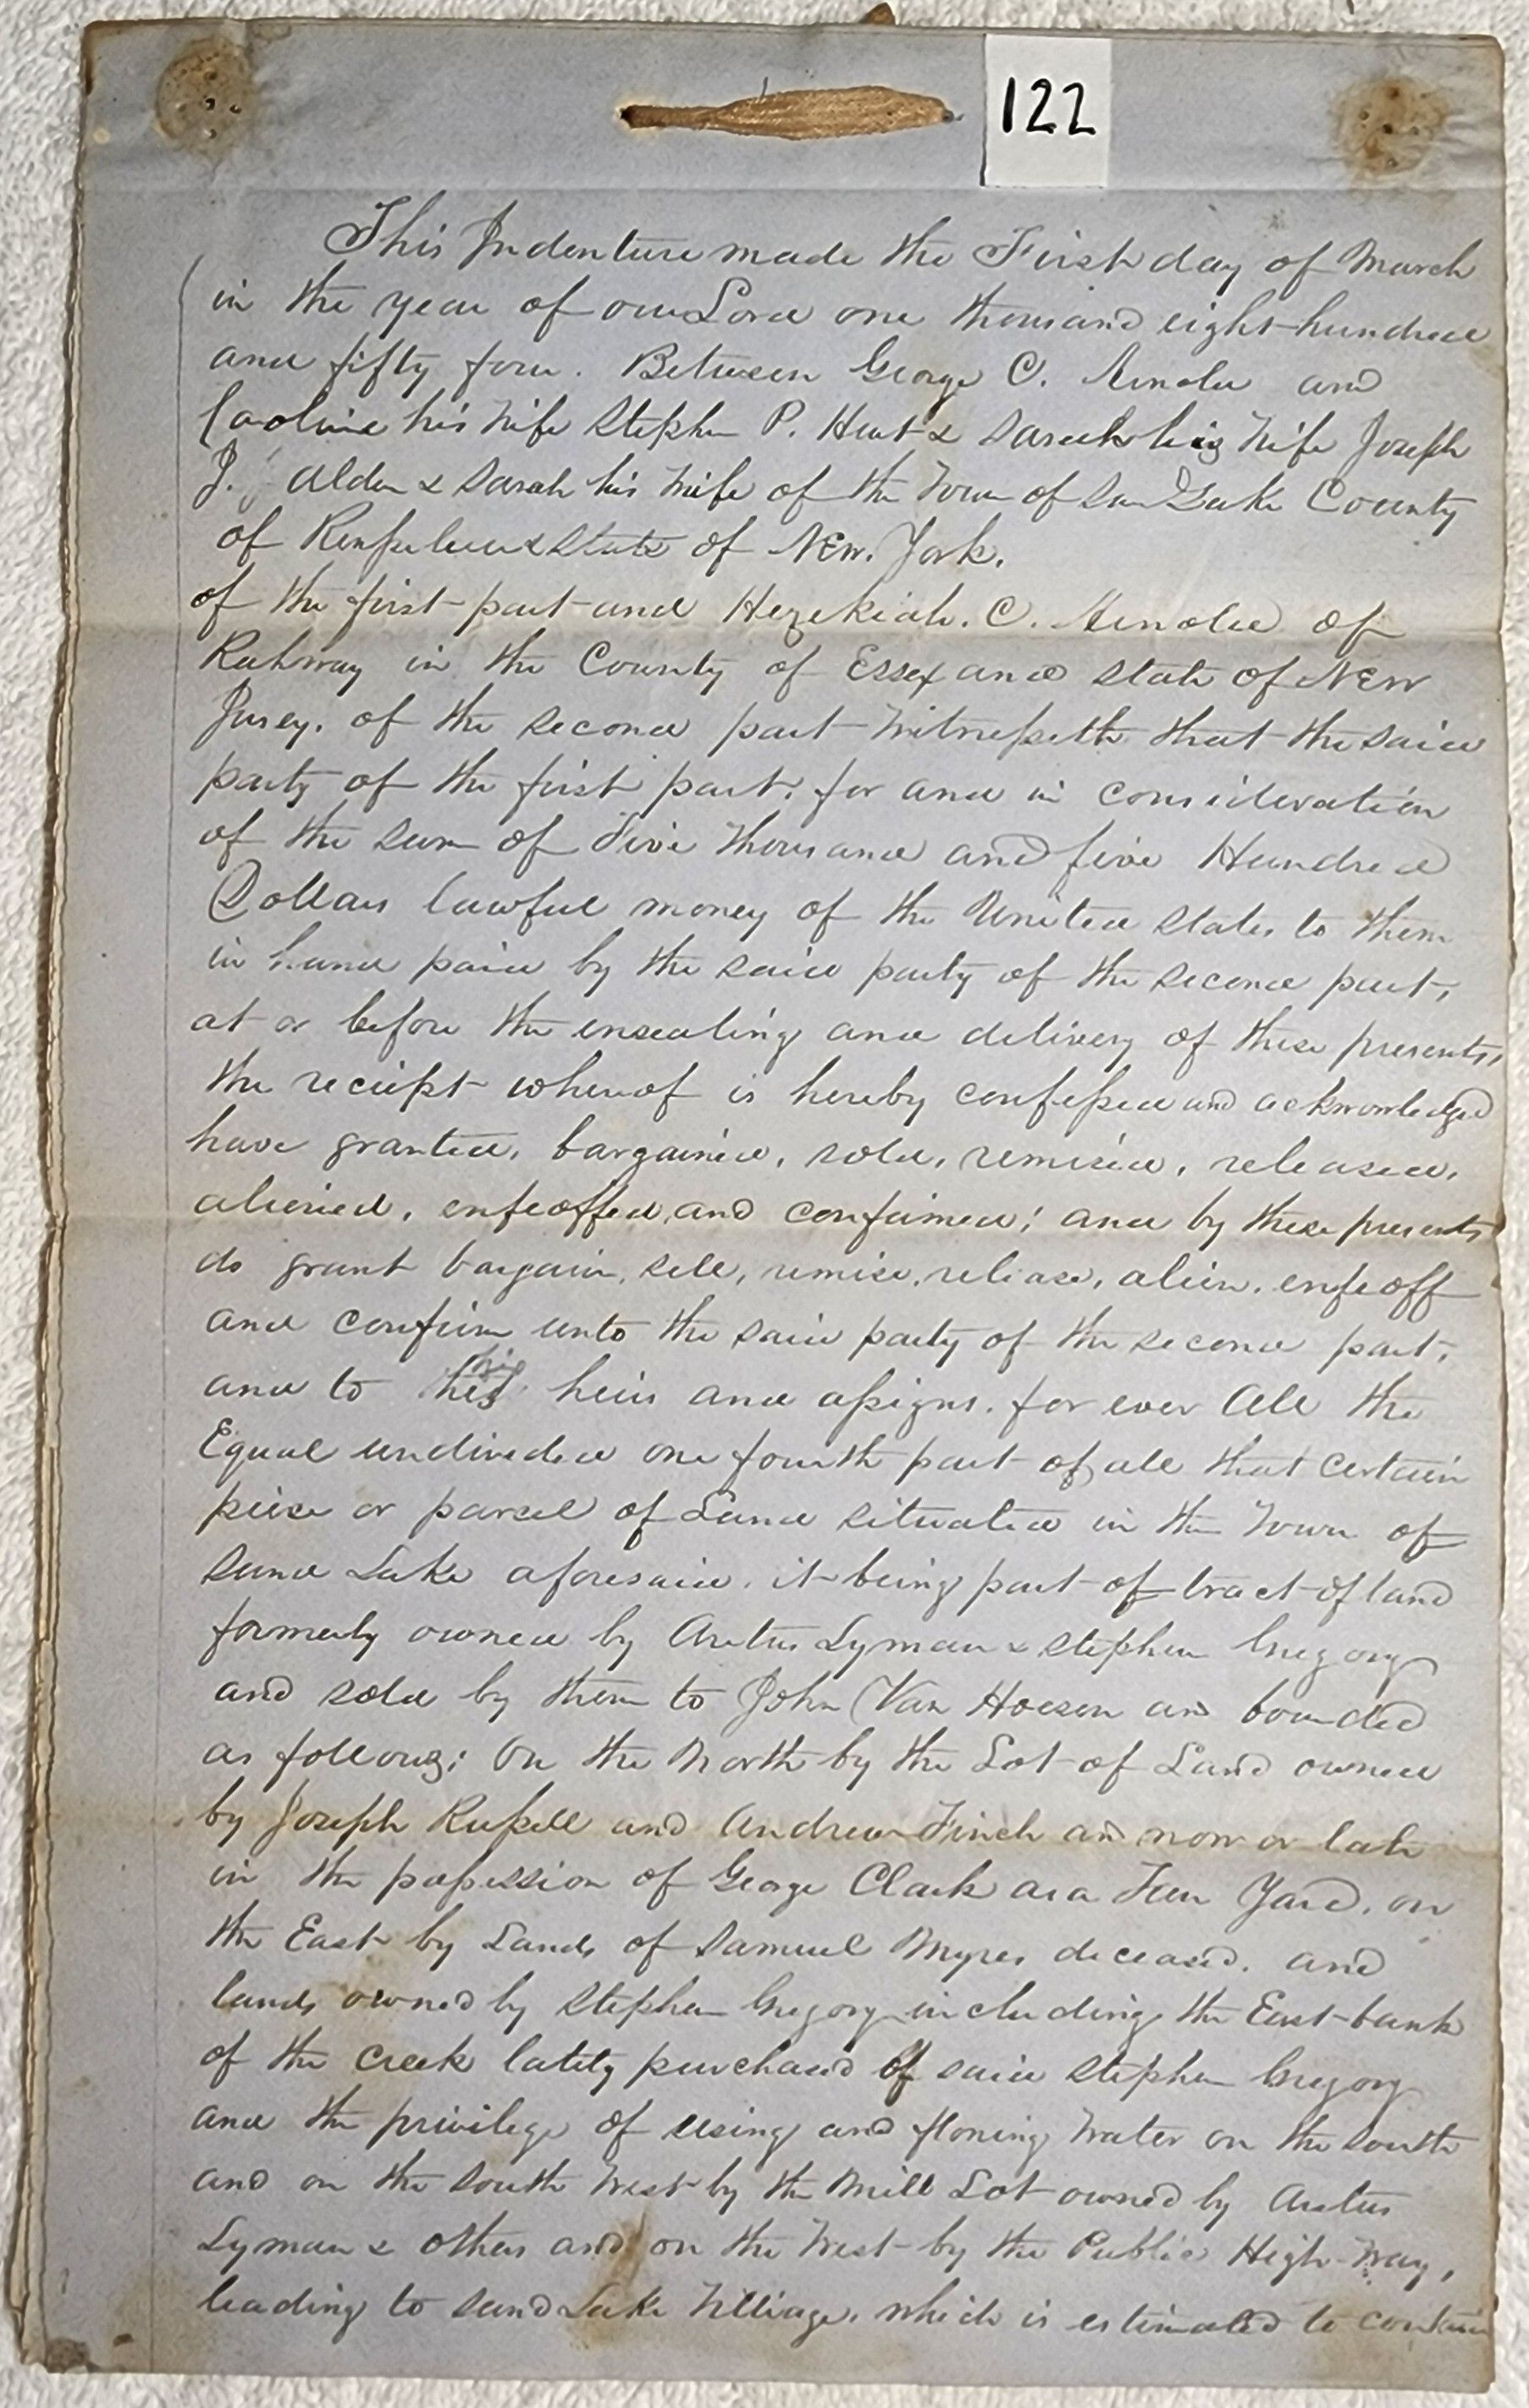 122
This Indenture made the First day of March
in the year of our Lord one thousand eight hundred
and fifty four. Between George C. Arnold and
Caroline his wife Stephen P. Hunt & Sarah his wife Joseph
J. Alden & Sarah his wife of the Town of Sand Lake County
of Rensselaer & State of New. York.
of the first part and Hezekiah. C. Arnold of
Rahway in the County of Essex and State of New
Jersey. of the second part Witnesseth that the said
party of the first part, for and in consideration
of the sum of Five Thousand and five Hundred
Dollars lawful money of the United States to them
in hand paid by the said party of the second part,
at or before the ensealing and delivery of these presents,
the receipt whereof is hereby confessed and acknowledged
have granted, bargained, sold, remised, released,
aliened, enfeoffed, and confirmed; and by these presents
do grant bargain, sell, remise, release, alien, enfeoff
and confirm unto the said party of the second part,
and to his his heirs and assigns. for ever All the
Equal undivided one fourth part of all that certain
peise or parcel of Land situated in the Town of
Sand Lake aforesaid. it being part of tract of land
formerly owned by Aretus Lyman & Stephen Gregory
and sold by them to John Van Hoesen and bounded
as follows; On the North by the Lot of Land owned
by Joseph Russell and Andrew Finch and now or late
in the possession of George Clark as a Tan Yard, on
the East by Lands of Samuel Myres deceased. and
lands owned by Stephen Gregory including the East bank
of the Creek lately purchased of said Stephen Gregory
and the privilege of using and flowing Water on the South
and on the South West by the Mill Lot owned by Aretus
Lyman & others and on the West by the Public High Way,
leading to Sand Lake Villiage, which is estimated to contain